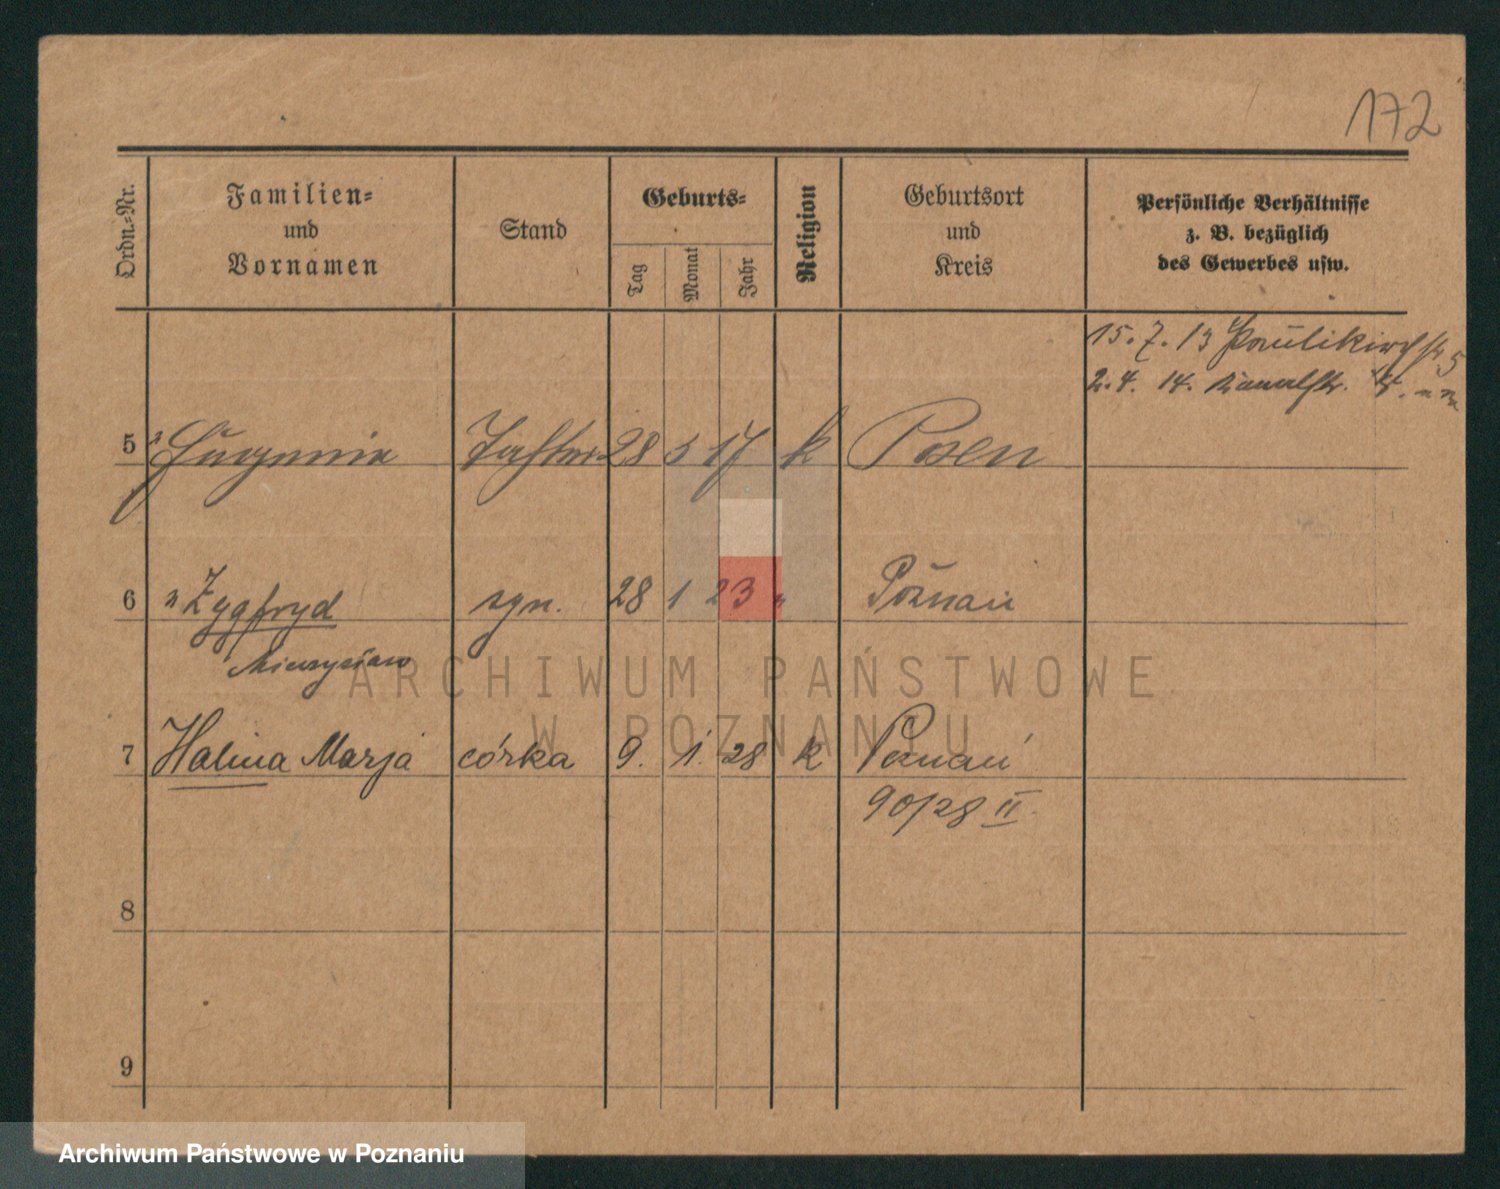 172
Ordn.=Nr.
Familien=
und
Vornamen
Stand
Geburts=
Tag
Monat
Jahr
Religion
Geburtsort
und
Kreis
Persönliche Verhältnisse
z. B. bezüglich
des Gewerbes usw.
15. 7. 13 Paulikirchstr. 5
2. 4. 14.
5 " Tochter 28 17 k Posen
6 " Zygfryd syn. 28 1 23 " Poznań
Mieczysław
7 Halina Marja córka 9. 1. 28 k Poznań
90/28 II
8
9
ARCHIWUM PAŃSTWOWE
W POZNANIU
Archiwum Państwowe w Poznaniu